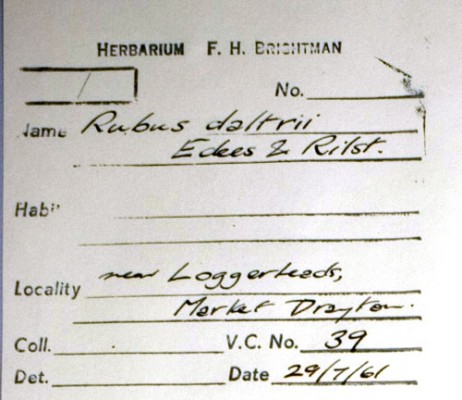 HERBARIUM F. H. BRIGHTMAN
No.
Name Rubus daltrii
Edees & Rilst.
Habit
Locality near Loggerheads,
Market Drayton.
Coll. V.C. No. 39
Det. Date 29/7/61